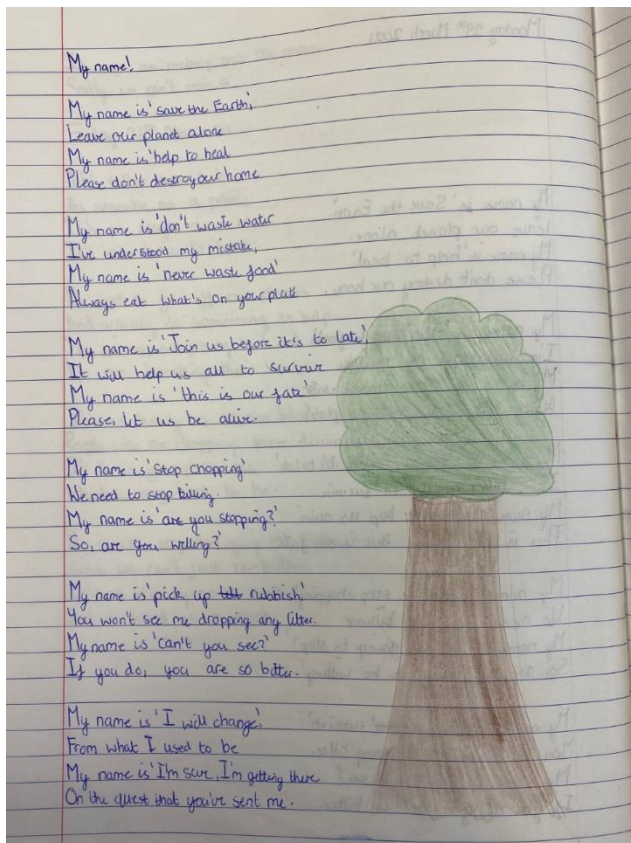 My name!
My name is 'save the Earth,'
Leave our planet alone
My name is 'help to heal
Please don't destroy our home
My name is 'don't waste water
I've understood my mistake,
My name is 'never waste food'
Always eat what's on your plate
My name is 'Join us before it's to late,'
It will help us all to survive
My name is 'this is our fate'
Please, let us be alive.
My name is 'stop chopping'
We need to stop killing.
My name is 'are you stopping?'
So, are you willing?'
My name is 'pick up rubbish,'
You won't see me dropping any litter.
My name is 'can't you see?'
If you do, you are so bitter.
My name is 'I will change,'
From what I used to be
My name is 'I'm sure, I'm getting there
On the quest that you've sent me.